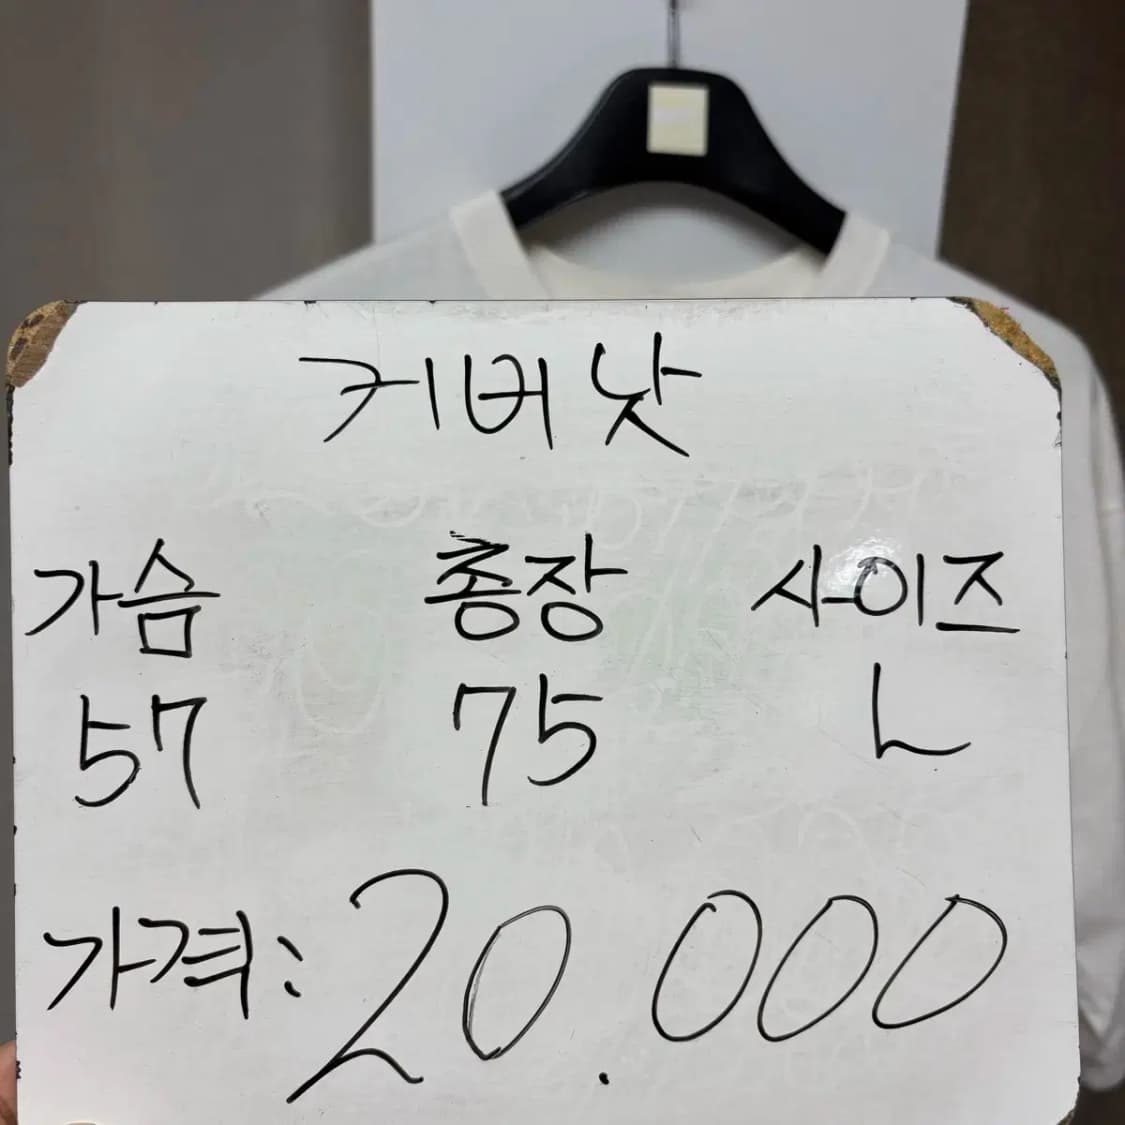 커버낫
가슴 총장 사이즈
57 75 L
가격: 20.000